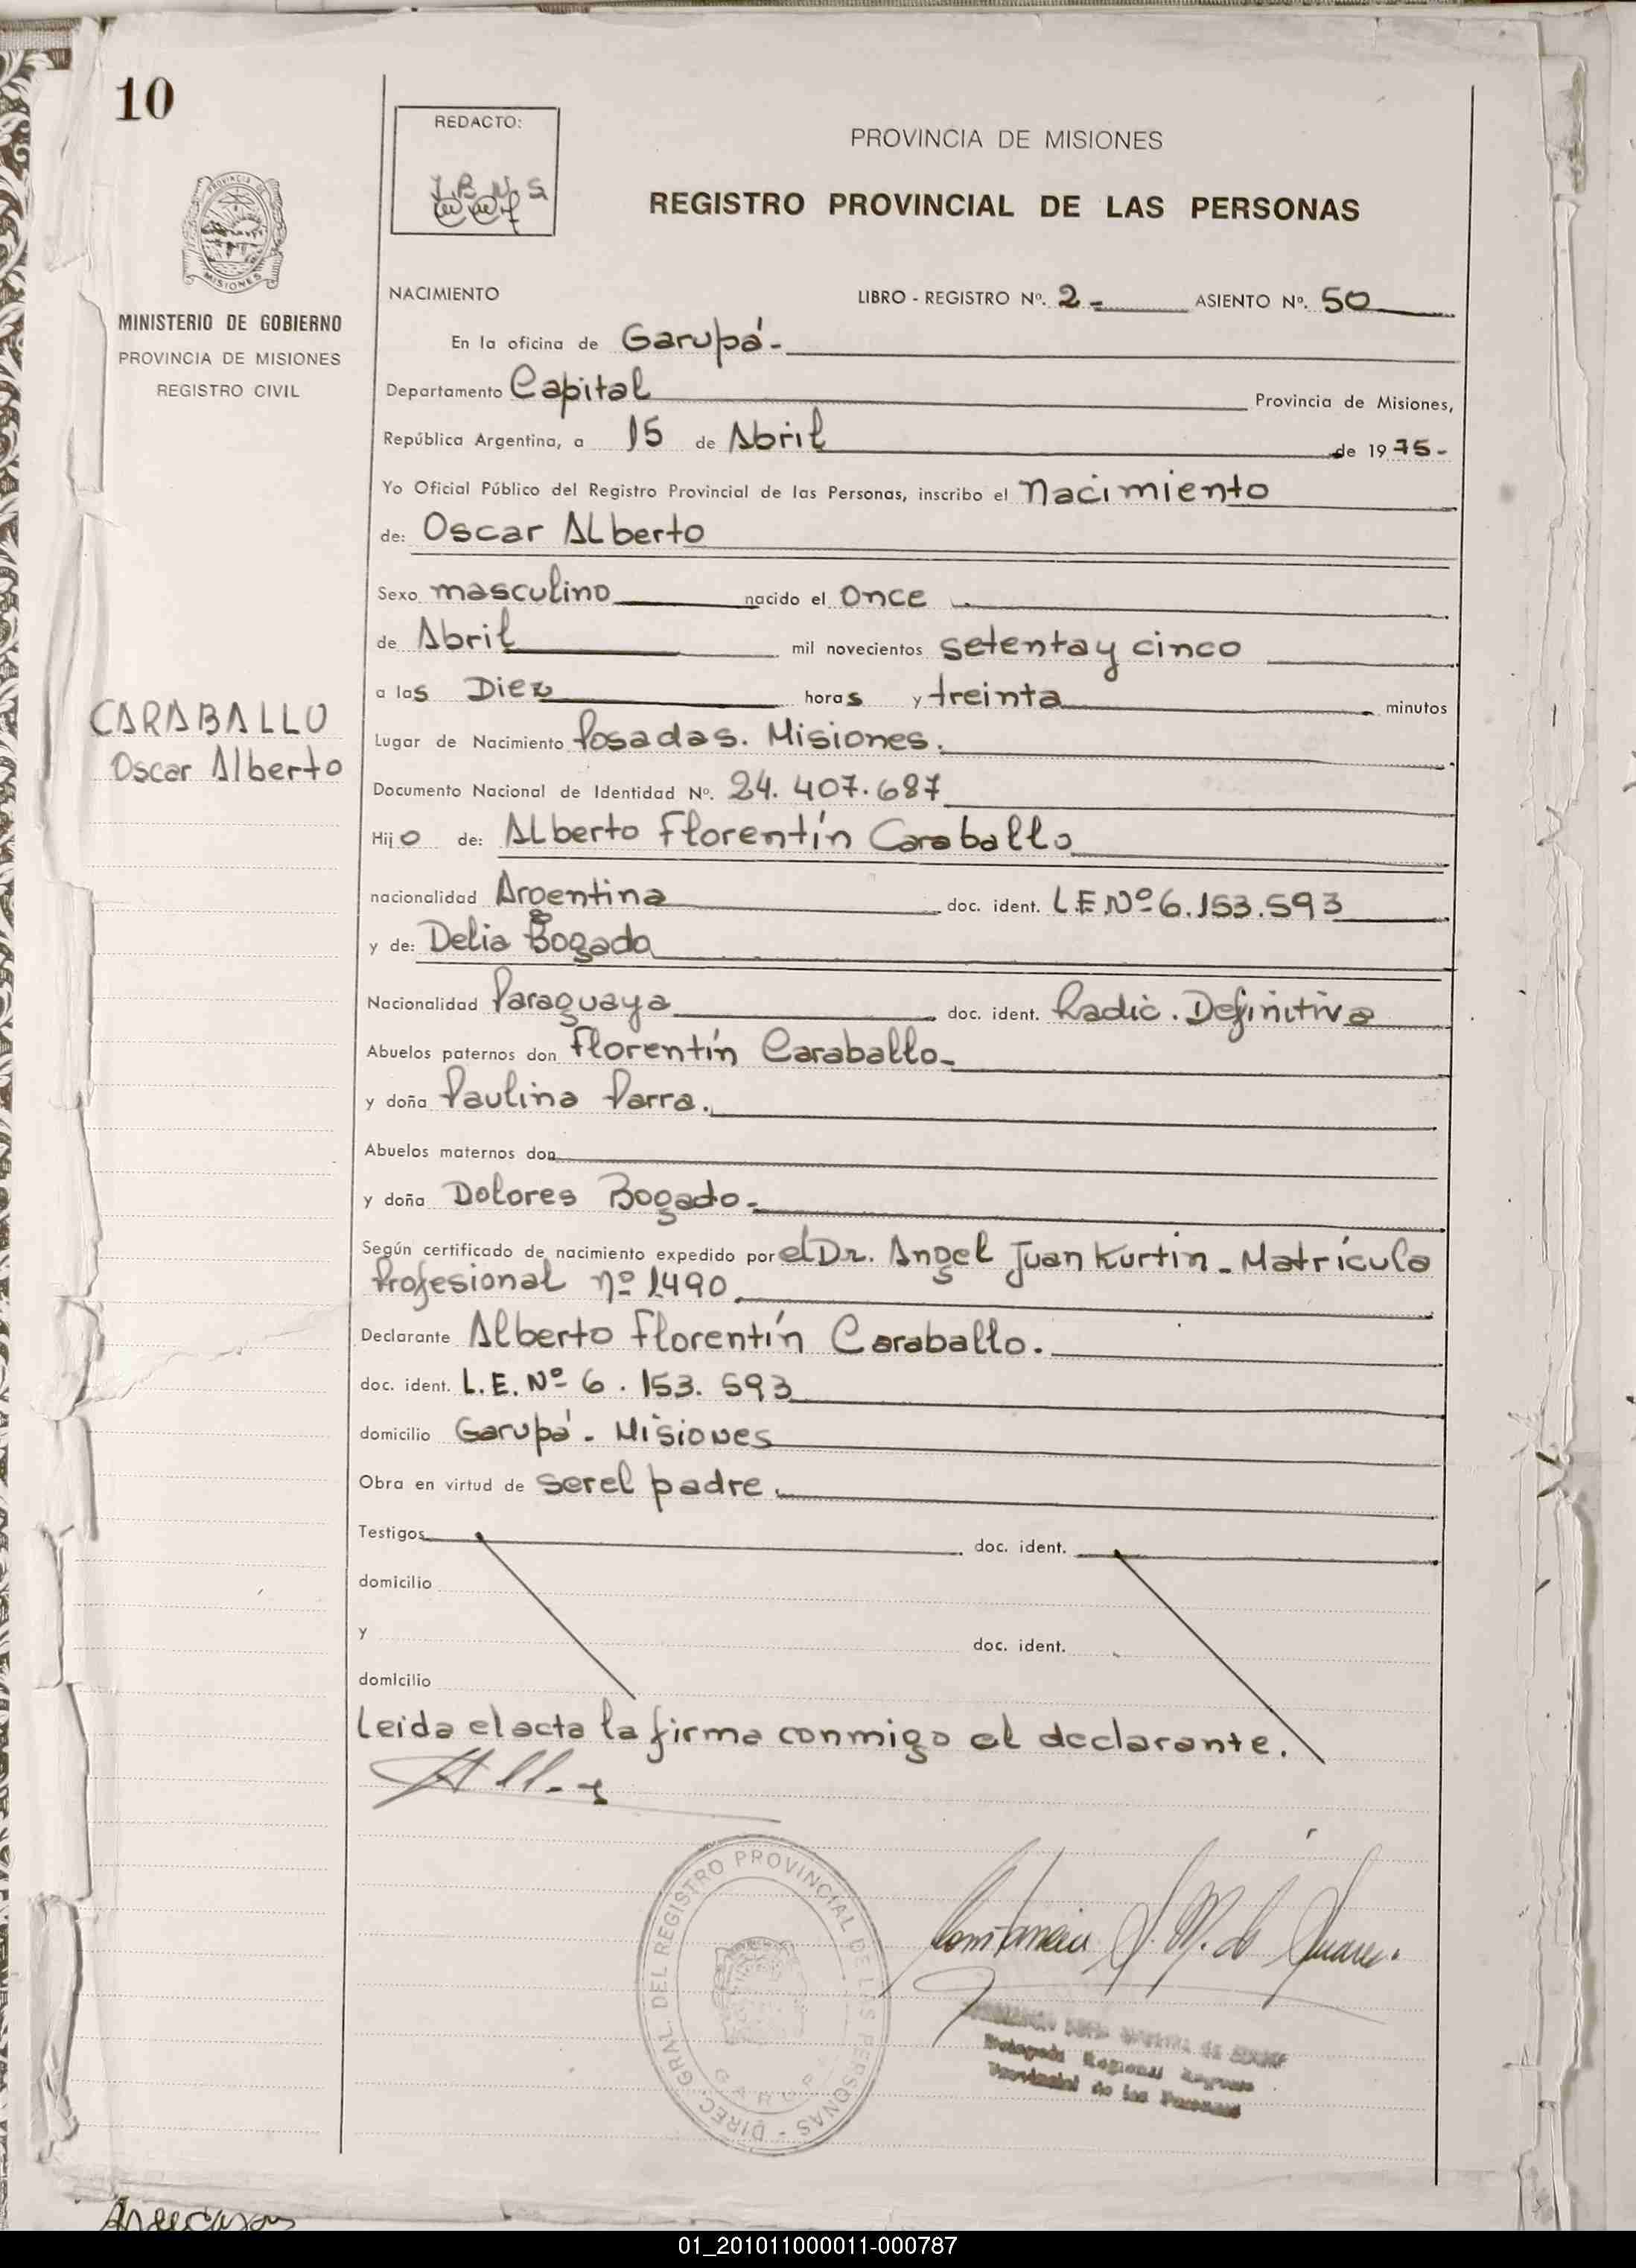 10
REDACTO:
PROVINCIA DE MISIONES
REGISTRO PROVINCIAL DE LAS PERSONAS
PROVINCIA DE
MISIONES
MINISTERIO DE GOBIERNO
PROVINCIA DE MISIONES
REGISTRO CIVIL
CARABALLO
Oscar Alberto
NACIMIENTO LIBRO - REGISTRO Nº. 2 - ASIENTO Nº. 50
En la oficina de Garupá -
Departamento Capital Provincia de Misiones,
República Argentina, a 15 de Abril de 1975-
Yo Oficial Público del Registro Provincial de las Personas, inscribo el Nacimiento
de: Oscar Alberto
Sexo masculino nacido el Once
de Abril mil novecientos setenta y cinco
a las Diez horas y treinta minutos
Lugar de Nacimiento Posadas. Misiones.
Documento Nacional de Identidad Nº. 24.407.687
Hijo de: Alberto Florentín Caraballo
nacionalidad Argentina doc. ident. L.E.Nº 6.153.593
y de: Delia Bogado
Nacionalidad Paraguaya doc. ident. Radic. Definitiva
Abuelos paternos don Florentín Caraballo-
y doña Paulina Parra.
Abuelos maternos don
y doña Dolores Bogado-
Según certificado de nacimiento expedido por el Dr. Angel Juan Kurtin - Matrícula
Profesional nº 1490.
Declarante Alberto Florentín Caraballo.
doc. ident. L.E. Nº 6.153.593
domicilio Garupá - Misiones
Obra en virtud de ser el padre.
Testigos doc. ident.
domicilio
y doc. ident.
domicilio
Leida el acta la firma conmigo el declarante.
DIREC. GRAL. DEL REGISTRO PROVINCIAL DE LAS PERSONAS -
Delegada Regional Registro
Provincial de las Personas
01_201011000011-000787